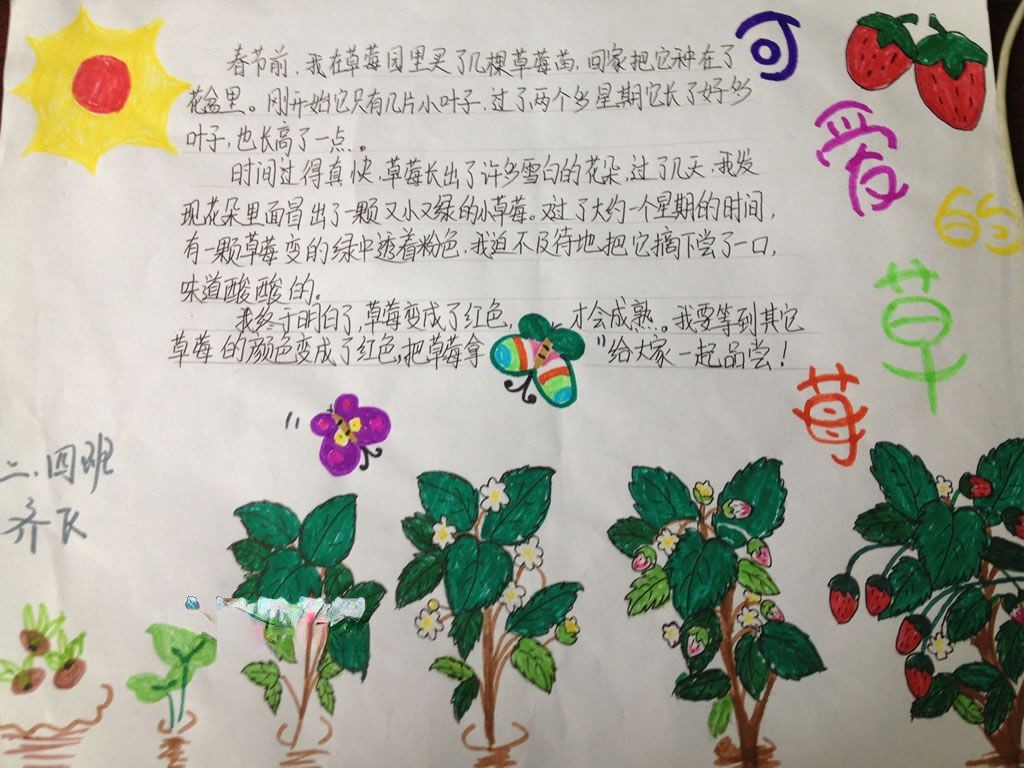 可爱的草莓
春节前，我在草莓园里买了几棵草莓苗，回家把它种在了
花盆里。刚开始它只有几片小叶子，过了两个多星期它长了好多
叶子，也长高了一点。
时间过得真快，草莓长出了许多雪白的花朵，过了几天，我发
现花朵里面冒出了一颗又小又绿的小草莓。又过了大约一个星期的时间，
有一颗草莓变的绿中透着粉色，我迫不及待地把它摘下尝了一口，
味道酸酸的。
我终于明白了，草莓变成了红色，才会成熟。我要等到其它
草莓的颜色变成了红色，把草莓拿给大家一起品尝！
二.四班
齐飞